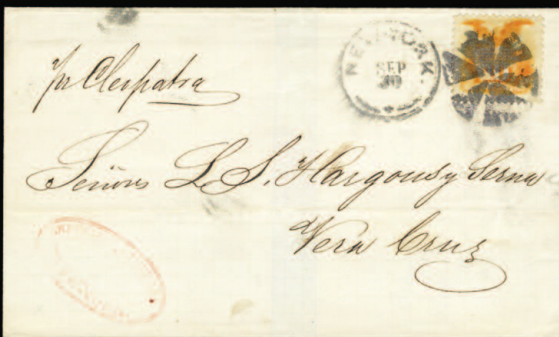 pr Cleopatra
NEW-YORK
SEP
30
Señores L. S. Hargous y Serna
Vera Cruz